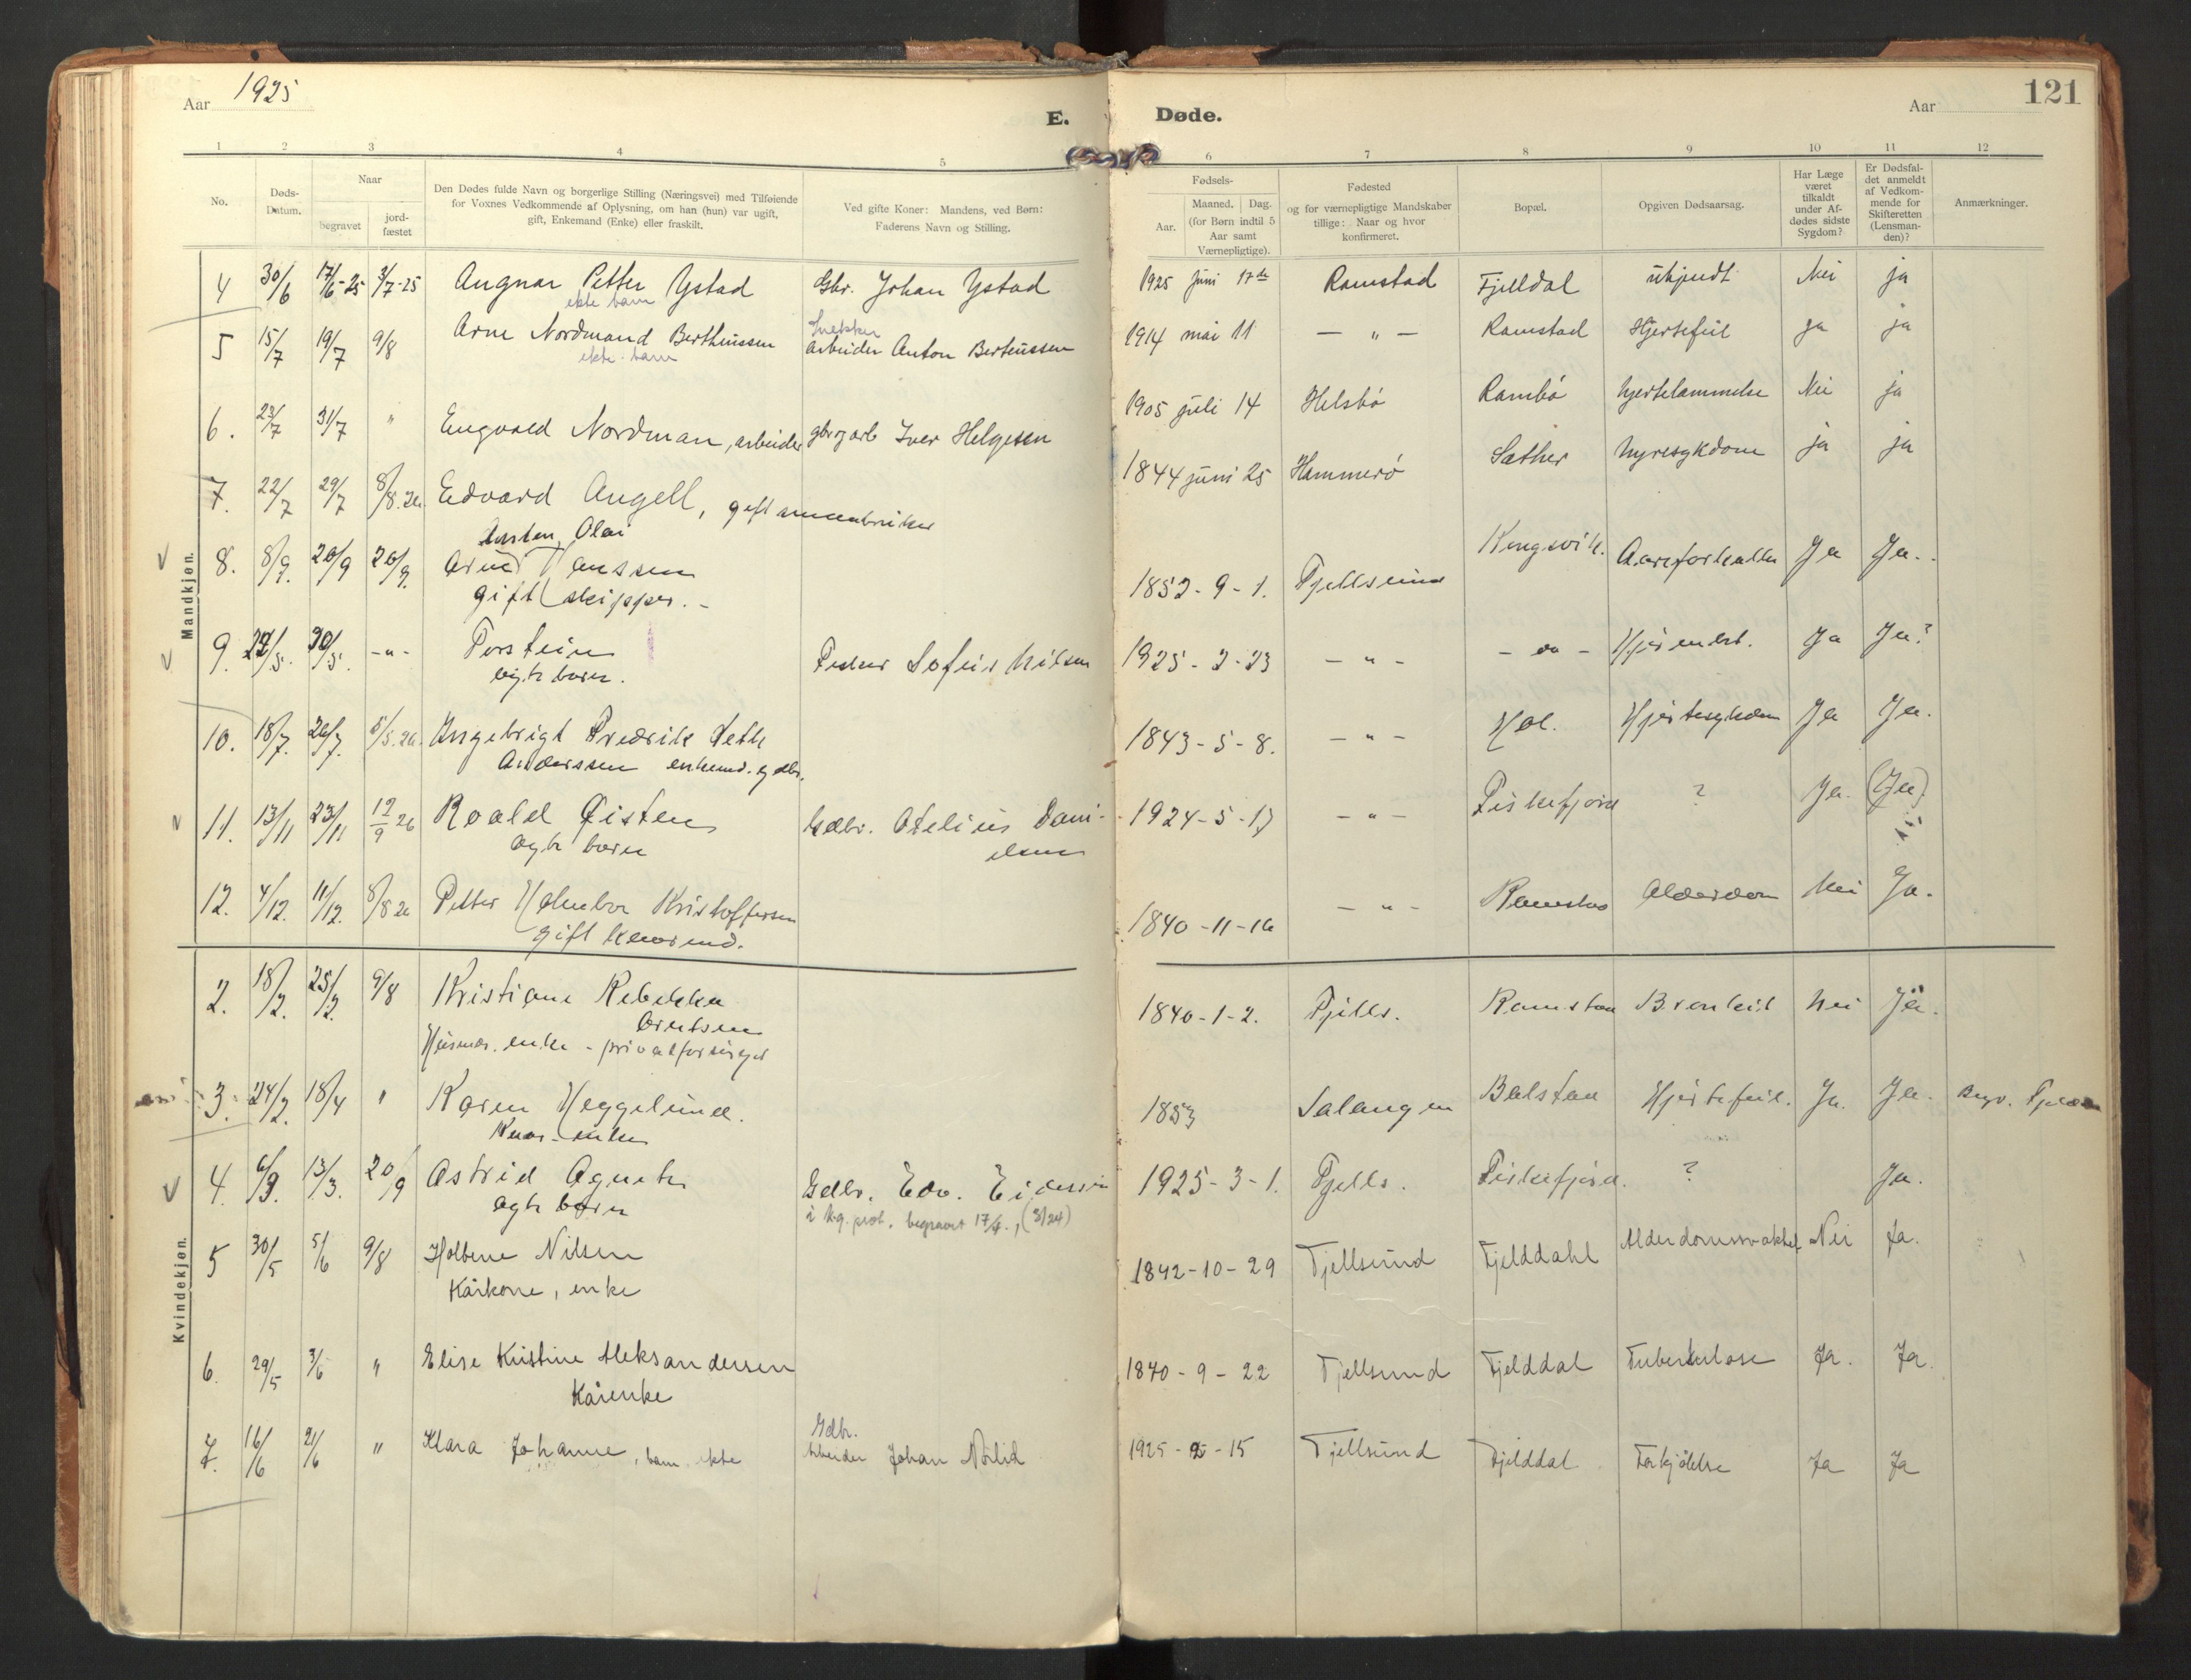 Aar 1925
E. Døde.
Aar
121
1 2 3 4 5 6 7 8 9 10 11 12
No.
Døds-
Datum.
Naar
begravet
jord-
fæstet
Den Dødes fulde Navn og borgerlige Stilling (Næringsvei) med Tilføiende
for Voxnes Vedkommende af Oplysning, om han (hun) var ugift,
gift, Enkemand (Enke) eller fraskilt.
Ved gifte Koner: Mandens, ved Børn:
Faderens Navn og Stilling.
Fødsels-
Aar.
Maaned. Dag.
(for Børn indtil 5
Aar samt
Værnepligtige).
Fødested
og for værnepligtige Mandskaber
tillige: Naar og hvor
konfirmeret.
Bopæl.
Opgiven Dødsaarsag.
Har Læge
været
tilkaldt
under Af-
dødes sidste
Sygdom?
Er Dødsfal-
det anmeldt
af Vedkom-
mende for
Skifteretten
(Lensman-
den)?
Anmærkninger.
Mandkjøn.
4 30/6 17/6-25 3/7-25 Augnar Petter Ystad Gbr. Johan Ystad 1925 juni 17de Ramstad Fjelldal ukjendt Nei ja
ekte barn
5 15/7 19/7 9/8 Arne Nordmand Berthinssen arbeider Anton Berteussen 1914 mai 11 — " — Ramstad Hjertefeil ja ja
Snekker
ekte barn
6. 23/7 31/7 " Engvald Nordman, arbeider gbr og arb Iver Helgesen 1905 juli 14 Helsbø Rambø hjertelammelse Nei ja
7. 22/7 29/7 8/8.26 Edvard Angell, gift 1844 juni 25 Hammerø Sæther Nyresykdom ja ja
Olai
8. 8/9. 20/9 20/9. Hanssen 1852-9-1. Fjellsund Kongsvik. Aareforkalkn Ja Ja.
gift skipper.
9. 30/5. -"- Torstein Peder Sofus Nilsen 1925-2-23 - " - Ja Ja?
ægte barn.
10. 18/7. 5/5.26. Ingebrigt Fredrik Seth 1843-5-8. - " - Hol. Hjertesykdom Ja Ja.
Anderssen enkemd. gdbr.
11. 13/11 23/11 12/9 26 Roald Øisten Gdbr. Otelius Dani- 1924-5-17 - " - Fiskefjord ? Ja. (Ja)
Ægte barn elsen
12. 4/12. 11/12. 8/8 26 Petter Kristoffersen 1840-11-16 - " - Ramstad Alderdom Nei Ja.
gift
Kvindekjøn.
2. 18/2. 25/2. 9/8 Kristiane Rebekka 1840-1-2. Fjells. Ramstad Nei Ja.
Arntsen
enke - privatforsørget
3. 24/2. 18/4 " Karen Heggelund. 1853 Salangen Balstad Hjertefeil. Ja. Ja.
4. 13/3. 20/9 Astrid Agnete Gdbr. Edv. 1925-3-1. Fjells. Fiskefjord. ? Ja.
ægte barn i kg. prot. begravet 17/4., (3/24)
5 30/5 5/6 9/8 Holbene Nilsen 1842-10-29 Fjellsund Fjelddahl Alderdomssvakhet Nei Ja.
Kårkone, enke
6. 29/5 3/6 " Elise Kristine Aleksandersen 1840-9-22 Fjellsund Fjelddal Tuberkulose Ja. Ja.
Kårenke
7. 16/6 21/6 " Klara Johanne, barn ekte Arbeider Johan Nørlid 1925-2-15 Fjellsund Fjelddal Forkjølelse Ja Ja
Gdbr.